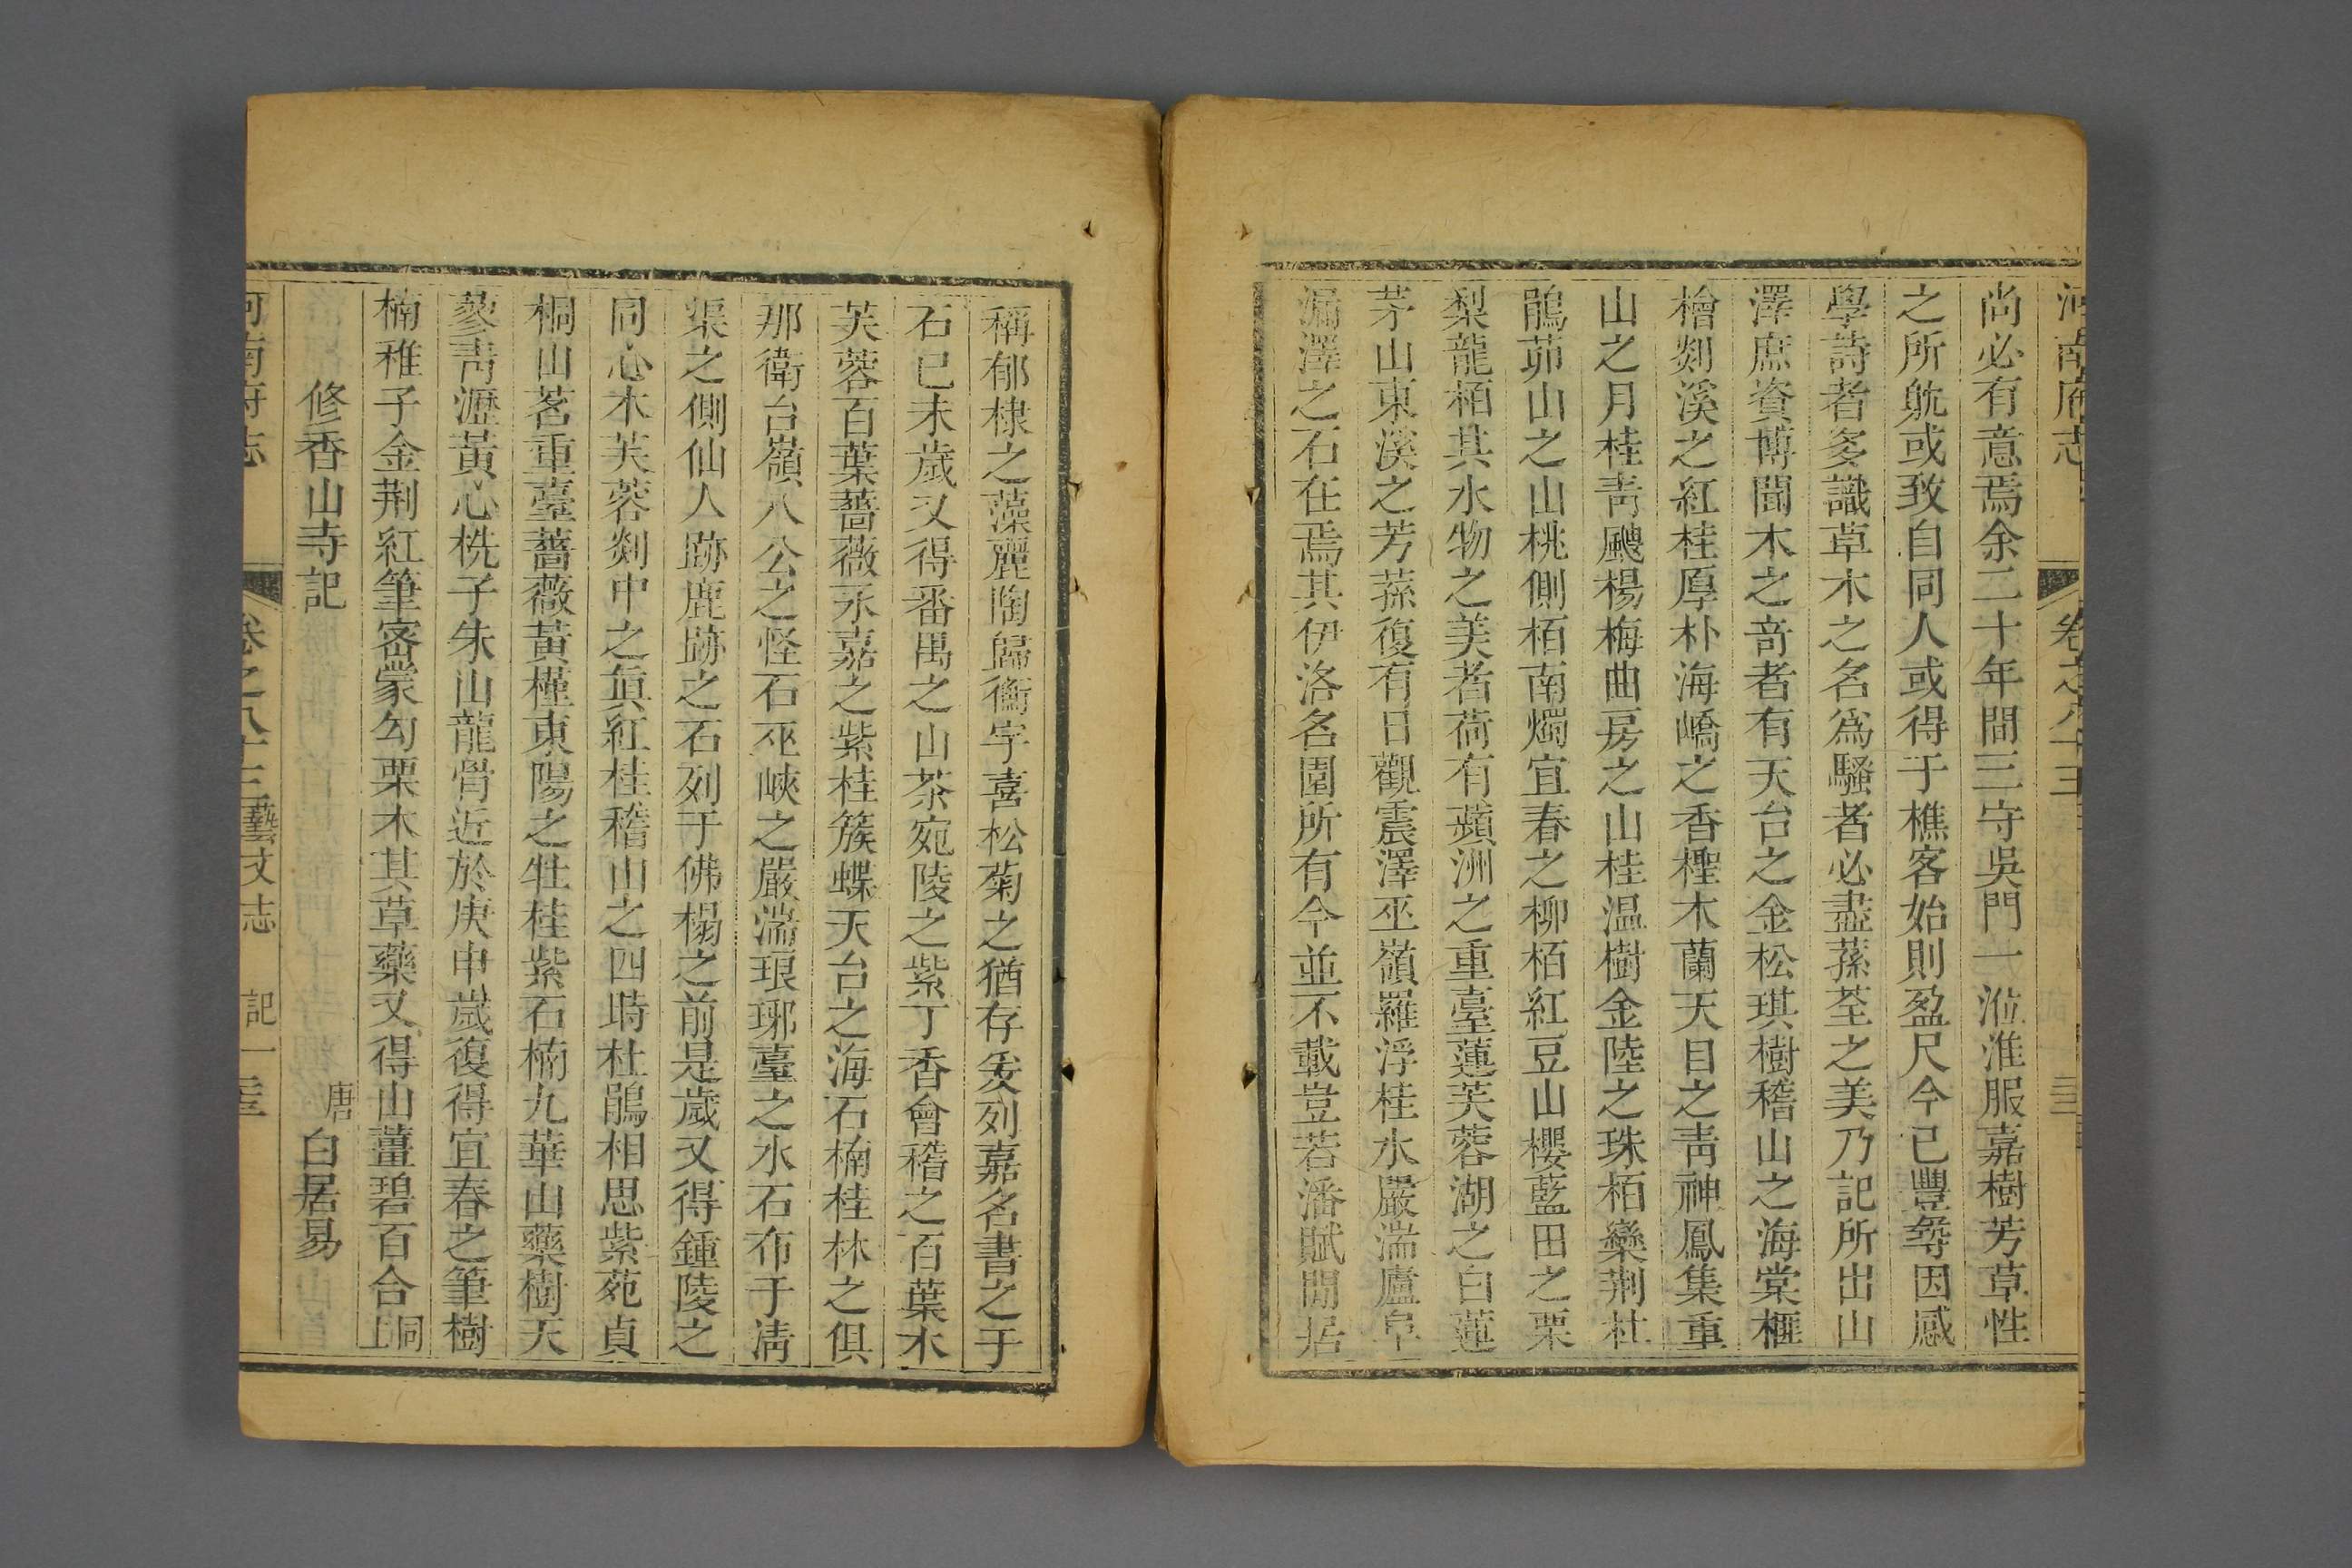 河南府志 卷之八十三
尚必有意焉余二十年間三守吳門一涖淮服嘉樹芳草性
之所躭或致自同人或得于樵客始則盈尺今已豐尋因感
學詩者多識草木之名爲騷者必盡蓀荃之美乃記所出山
澤庶資博聞木之竒者有天台之金松琪樹稽山之海棠榧
檜剡溪之紅桂厚朴海嶠之香檉木蘭天目之靑神鳳集重
山之月桂靑颼楊梅曲房之山桂温樹金陵之珠栢欒荆杜
鵑茆山之山桃側栢南燭宜春之柳栢紅豆山櫻藍田之栗
梨龍栢其水物之美者荷有蘋洲之重臺蓮芙蓉湖之白蓮
茅山東溪之芳蓀復有日觀震澤巫嶺羅浮桂水嚴湍廬阜
漏澤之石在焉其伊洛名園所有今並不載豈若潘賦閒居
稱郁棣之藻麗陶歸衡宇喜松菊之猶存爰列嘉名書之于
石已未歲又得番禺之山茶宛陵之紫丁香會稽之百葉木
芙蓉百葉薔薇永嘉之紫桂簇蝶天台之海石楠桂林之俱
那衛台嶺八公之怪石巫峽之嚴湍琅琊臺之水石布于淸
渠之側仙人跡鹿跡之石列于佛榻之前是歲又得鍾陵之
同心木芙蓉剡中之眞紅桂稽山之四時杜鵑相思紫苑貞
桐山茗重臺薔薇黃槿東陽之牡桂紫石楠九華山藥樹天
蓼靑瀝黃心桄子朱山龍骨近於庚申歲復得宜春之筆樹
楠稚子金荆紅筆密蒙勾栗木其草藥又得山薑碧百合同上
修香山寺記 唐白居易
河南府志 卷之八十三 藝文志 記一